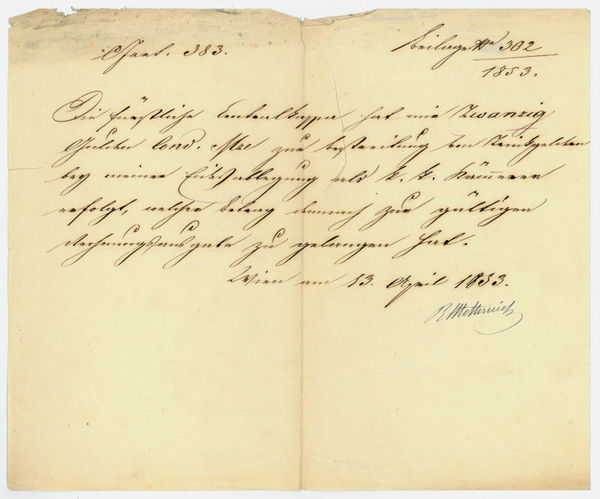 Chart. 383.
Beilage Nr 302
1853.
Die fürstliche Centralkassa hat mir Zwanzig
Gulden Conv. Mze zur Bestreitung von Trinkgeldern
bey meiner Eidesablegung als k. k. Kämmerer
erfolgt, welcher Betrag demnach zur gültigen
Rechnungsausgabe zu gelangen hat.
Wien am 13. April 1853.
RMetternich